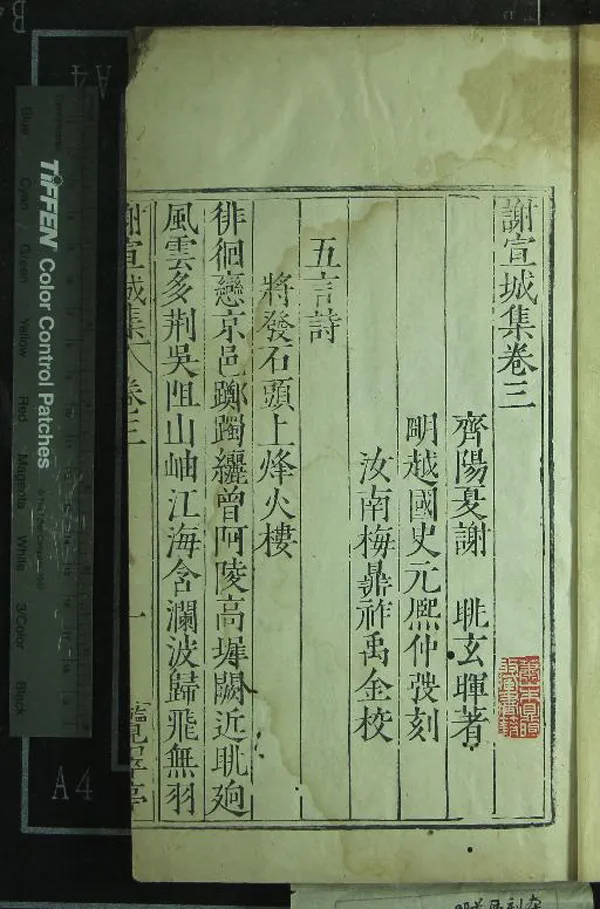 謝宣城集卷三
齊陽夏謝 眺玄暉著
明越國史元熈仲弢刻
汝南梅鼎祚禹金校
五言詩
將發石頭上烽火樓
徘徊戀京邑躑躅纚曾阿陵高墀闕近眺逈
風雲多荆吳阻山岫江海含瀾波歸飛無羽
謝宣城集 卷三 一
TIFFEN Color Control Patches
Blue Cyan Green Yellow Red Magenta White 3/Color Black
A4
A4